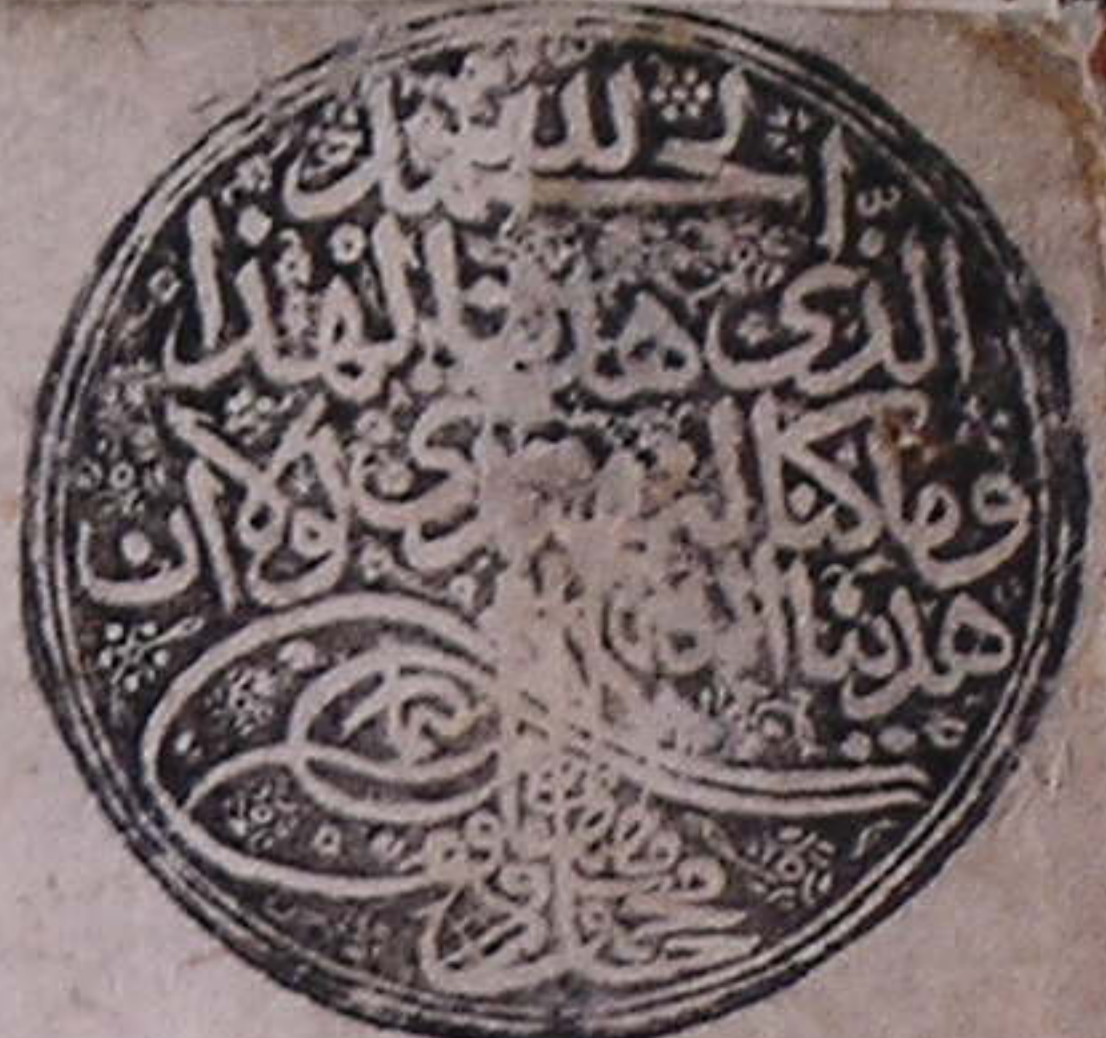 الحمد لله
الذى هدانا لهذا
وما كنا لنهتدى لولا ان
هدينا الله